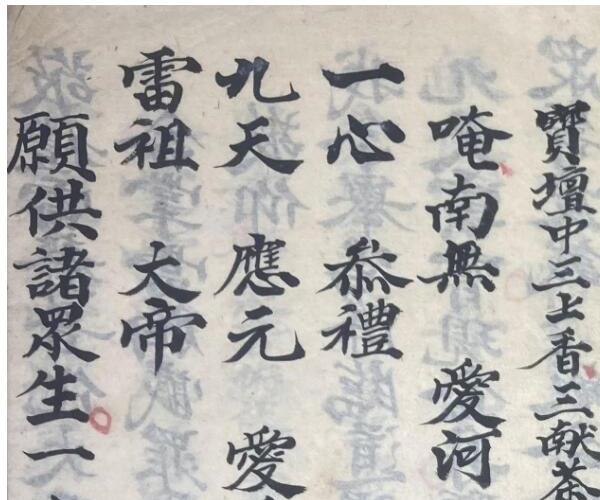 寶壇中三上香三献茶
唵南無 愛河
一心 恭禮
九天 應元 愛
雷祖 大帝
願供諸眾生一